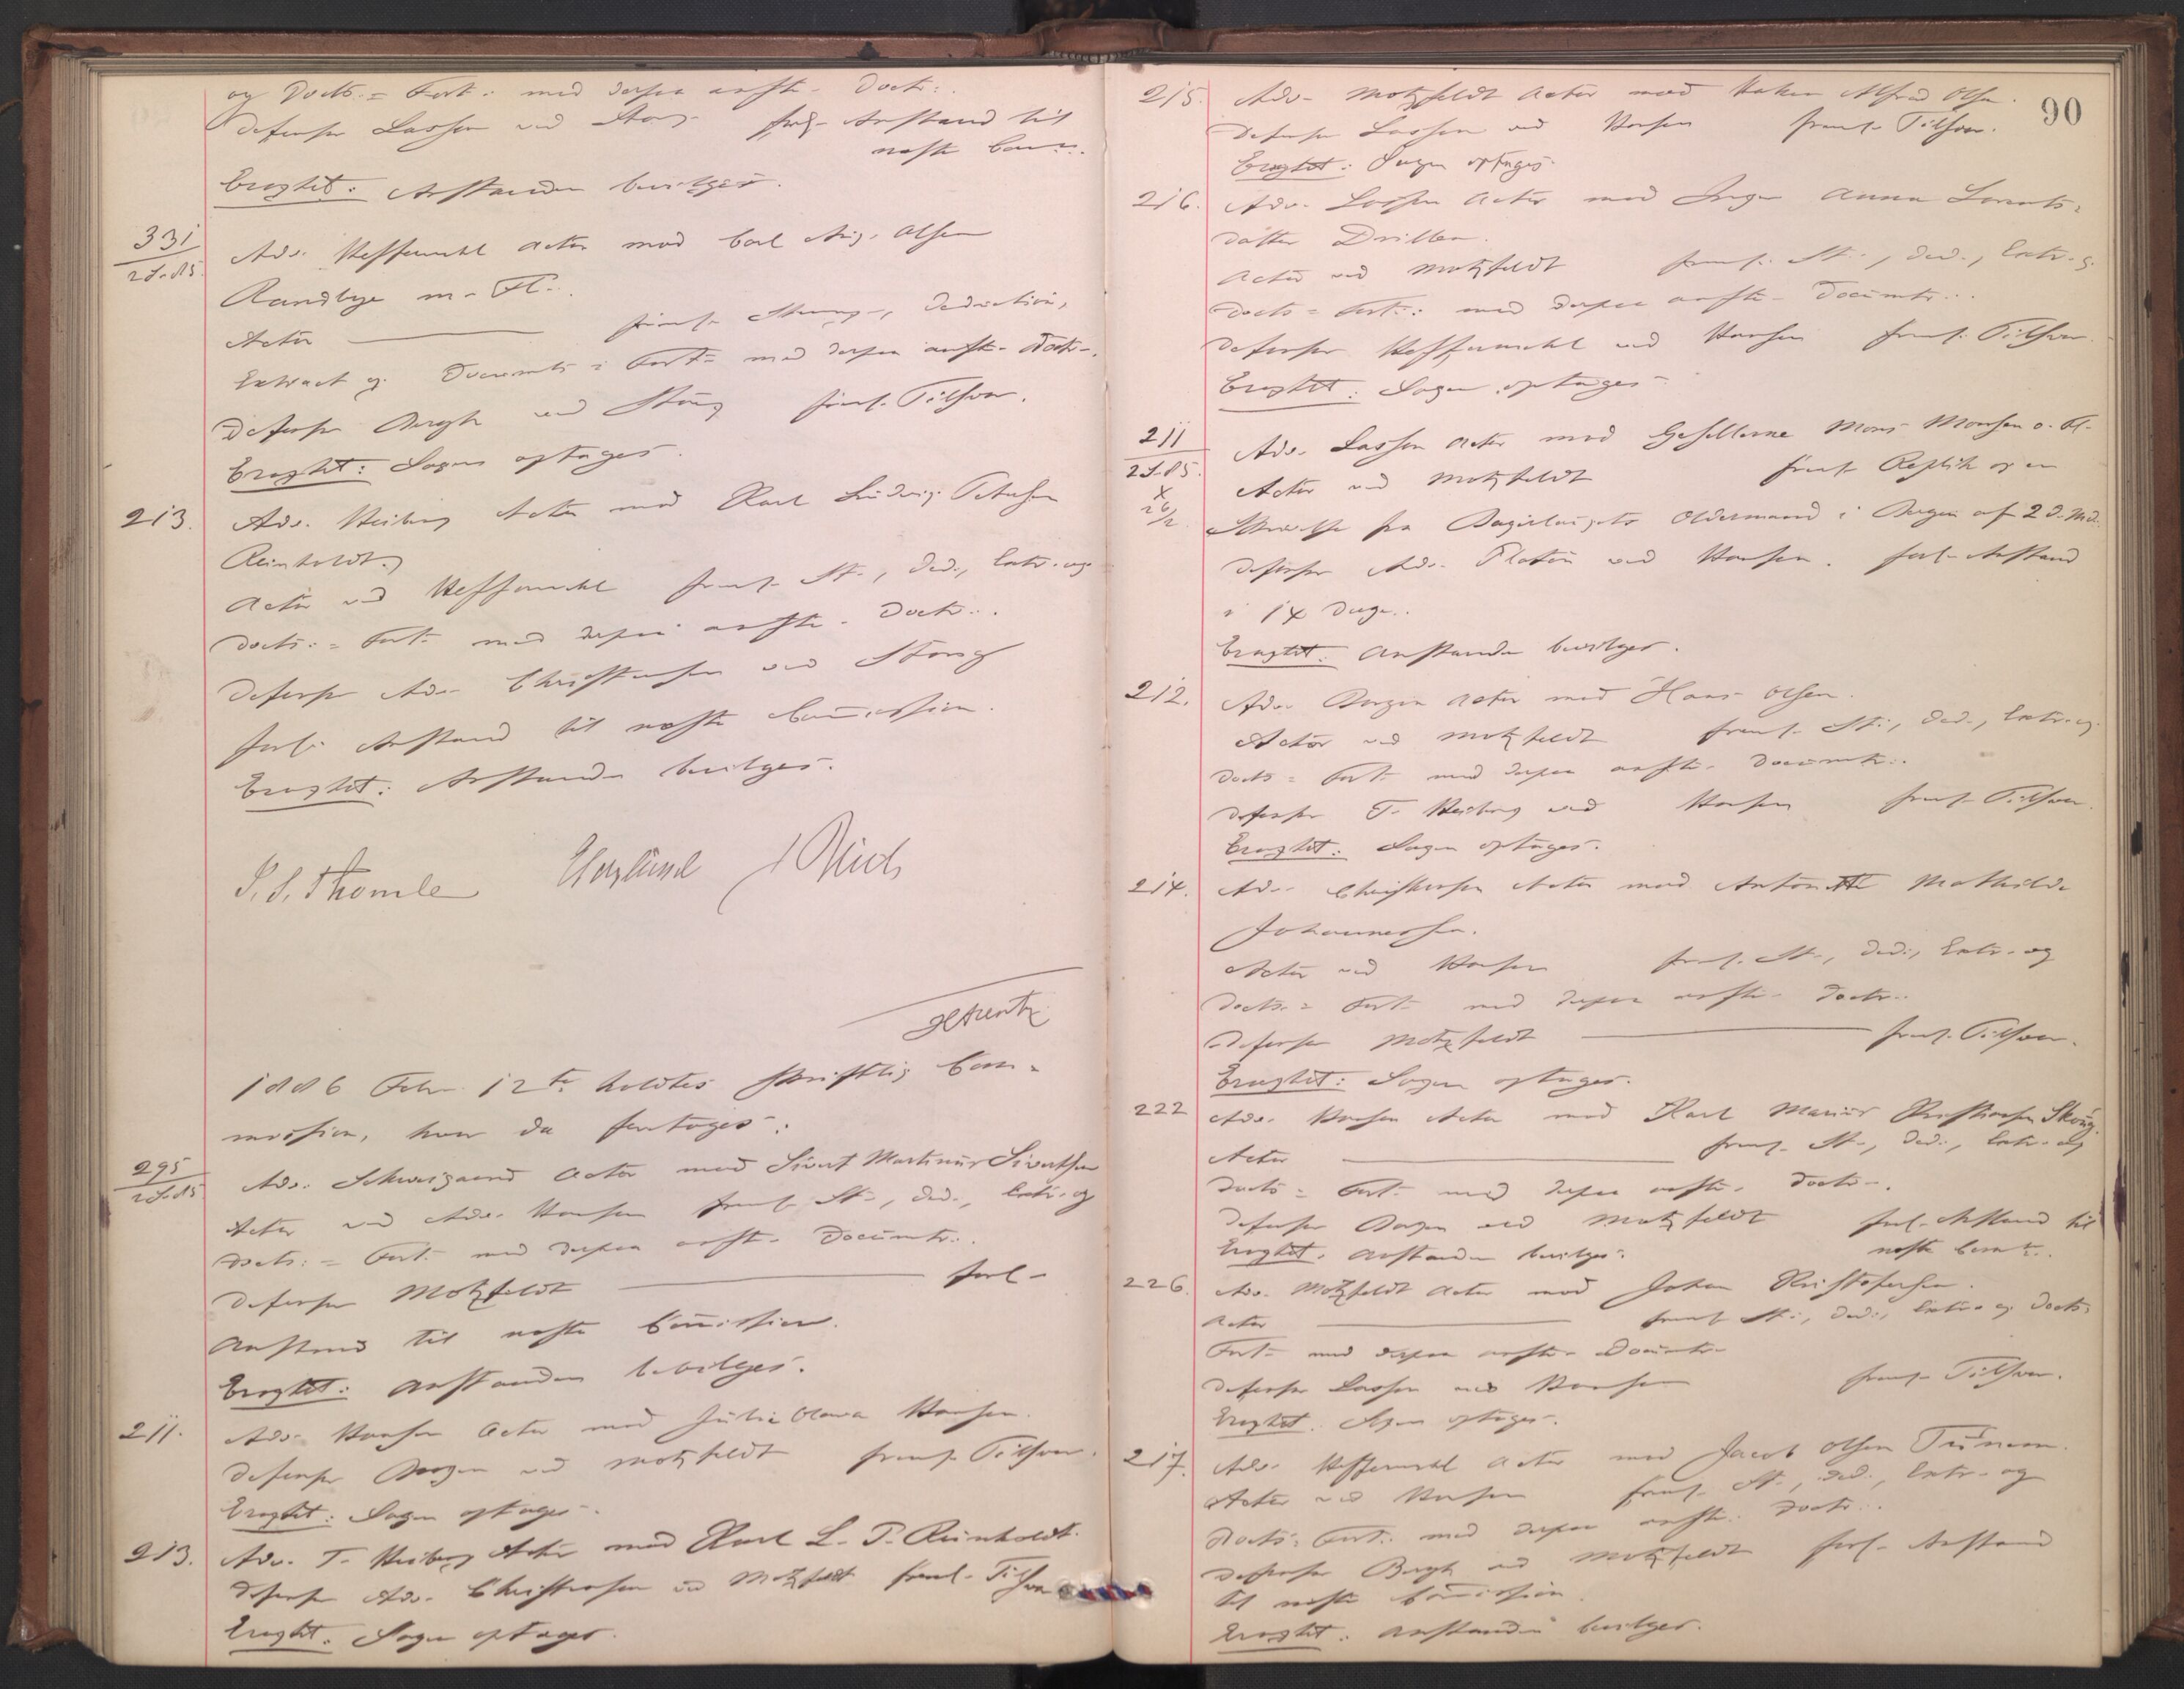 og Docts: = Fort: med derpaa anfte. Docts:.
Defensor Lassen ved Stang forl. Anstand til
næste Comn.
Eragtet: Anstanden bevilges.
331
2 S. 85.
Adv. Heffermehl Actor mod Carl Aug. Olsen
Randbye m. Fl.
Actor freml. Stevning, Deduction,
Extract og Documents = Fort. med derpaa anfte. Docts.
Defensor Bergh ved Stang freml. Tilsvar.
Eragtet: Sagen optages.
213.
Adv. Heiberg Actor mod Karl Ludvig Petersen
Reinholdt.
Actor ved Heffermehl freml. St., Ded., Extr. og
Docts: = Fort. med derpaa anfte. Docts.
Defensor Adv. Christensen ved Stang
forl. Anstand til næste Commission.
Eragtet: Anstanden bevilges.
1886 Febr. 12te holdtes skriftlig Com=
mission, hvor da foretoges:
295
2 S. 85
Adv. Schweigaard Actor mod Sivert Martinus Sivertsen
Actor ved Adv. Hansen freml. St., Ded., Extr. og
Docts: = Fort. med derpaa anfte. Documtr.
Defensor Motzfeldt forl.
Anstand til næste Commission.
Eragtet: Anstanden bevilges.
211.
Adv. Hansen Actor mod Julie Olava Hansen.
Defensor ved Motzfeldt freml. Tilsvar.
Eragtet: Sagen optages.
213.
Adv. T. Heiberg Actor mod Karl L. P. Reinholdt.
Defensor Adv. Christensen ved Motzfeldt freml. Tilsvar
Eragtet: Sagen optages.
90
215.
Adv. Motzfeldt Actor mod Haken Alfred Olsen.
Defensor Lassen ved Hansen freml. Tilsvar.
Eragtet: Sagen optages.
216.
Adv. Lassen Actor mod Inger Anna Lorents=
datter Drillen.
Actor ved Motzfeldt freml. St., Ded., Extr. og
Docts = Fort: med derpaa anfte. Documtr.
Defensor Heffermehl ved Hansen freml. Tilsvar.
Eragtet: Sagen optages.
211
2 S. 85.
Adv. Lassen Actor mod Gesellerne Mons Monsen o. Fl.
Actor ved Motzfeldt freml. Replik og en
Skrivelse fra Bagerlaugets Oldermand i Bergen af 2 d. Md.
Defensor Adv. Platou ved Hansen. forl. Anstand
i 14 Dage.
Eragtet: Anstanden bevilges.
212.
Adv. Actor mod Hans Olsen.
Actor ved Motzfeldt freml. St., Ded., Extr. og
Docts = Fort. med derpaa anfte. Documtr.
Defensor T. Heiberg ved Hansen freml. Tilsvar.
Eragtet: Sagen optages.
214.
Adv. Christensen Actor mod Antonette Mathilde
Johannessen.
Actor ved Hansen freml. St., Ded., Extr. og
Docts. = Fort. med derpaa anfte. Docts.
Defensor Motzfeldt freml. Tilsvar.
Eragtet: Sagen optages.
222
Adv. Hansen Actor mod Karl Marius Skoug.
Actor freml. St., Ded., Extr. og
Docts = Fort. med derpaa anfte. Docts.
Defensor ved Motzfeldt forl. Anstand til
Eragtet: Anstanden bevilges. næste Comn.
226.
Adv. Motzfeldt Actor mod Johan Kristofersen.
Actor freml. St., Ded., Extr. og Docts=
Fort. med derpaa anfte. Documtr.
Defensor Lassen ved Hansen freml. Tilsvar.
Eragtet: Sagen optages.
217.
Adv. Heffermehl Actor mod Jacob Olsen
Actor ved Hansen freml. St., Ded., Extr. og
Docts = Fort: med derpaa anfte. Docts.
Defensor Bergh ved Motzfeldt forl. Anstand
til næste Commission.
Eragtet: Anstanden bevilges.